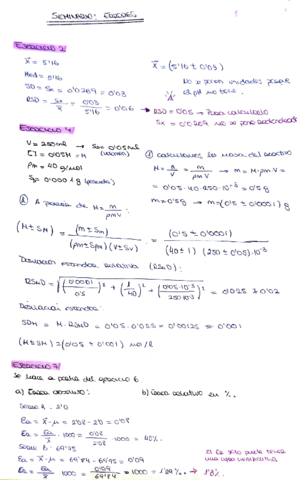 SEMINARIO: ERRORES
EJERCICIO 2
x̄ = 5'16
x̄ = (5'16 ± 0'03)
Med = 5'16
SD = Sn = 0'0269 ≈ 0'03
No se ponen unidades porque el pH no tiene.
RSD = Sn/x̄ = 0'03/5'16 = 0'06 → RSD = 0'05 → Para calcularlo
Sn = 0'0269 no se pone redondeado
EJERCICIO 4
V = 250 ml → Sv = 0'05 ml
[ ] = 0'05 M = M
Pm = 40 g/mol
Sp = 0'0001 g (pesada)
① Calculamos la masa del reactivo
M = n/V = m/PM·V → m = M·PM·V =
= 0'05·40·250·10⁻³ = 0'5 g
m = 0'5 g → m = (0'5 ± 0'0001) g
② A partir de M = m/PM·V
(M ± SM) = (m ± Sm)/(PM ± SPM)(V ± Sv) = (0'5 ± 0'0001)/(40 ± 1)(250 ± 0'05)·10⁻³
Desviación estándar relativa (RSD):
RSDM = √(0'0001/0'5)² + (1/40)² + (0'05·10⁻³/250·10⁻³)² = 0'025 ≈ 0'02
Desviación estándar:
SDM = M·RSDM = 0'05·0'025 = 0'00125 ≈ 0'001
(M ± SM) = (0'05 ± 0'001) mol/L
EJERCICIO 7
Se hace a partir del ejercicio 6.
a) Error absoluto:
b) Error relativo en %.
Ea = x̄ - μ = 2'08 - 2'0 = 0'08
Serie B: 69'75
Ea = x̄ - μ = 69'84 - 69'75 = 0'09
El Er sólo puede tener una cifra significativa